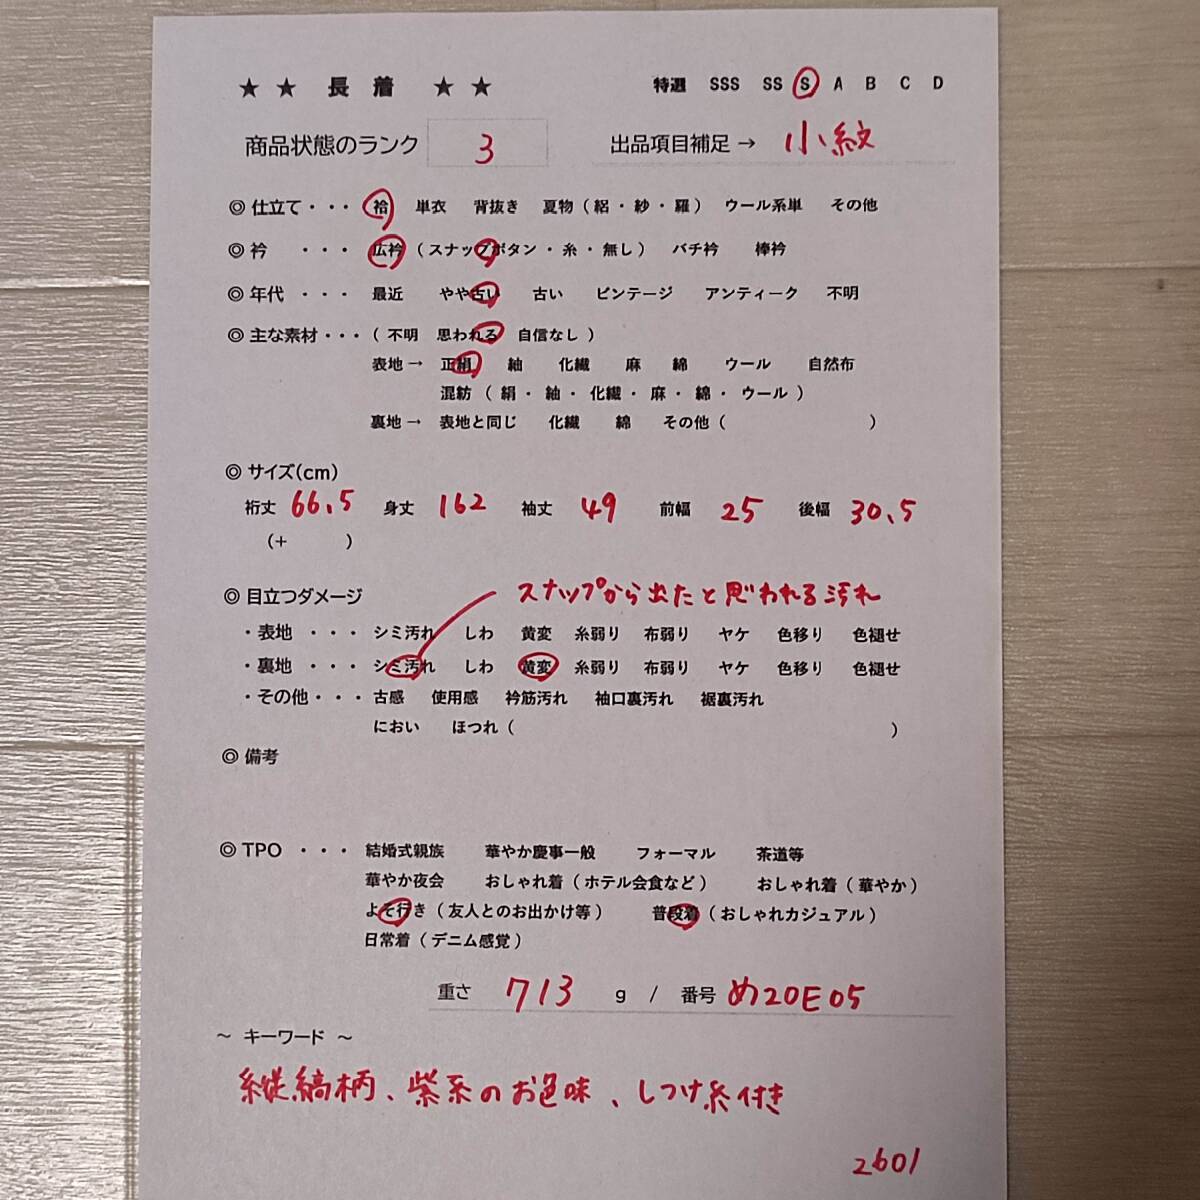 ★ ★ 長 着 ★ ★ 特選 SSS SS S A B C D
商品状態のランク 3 出品項目補足 → 小紋
◎ 仕立て・・・ 袷 単衣 背抜き 夏物 ( 絽 ・ 紗 ・ 羅 ) ウール系単 その他
◎ 衿 ・・・ 広衿 ( スナップボタン ・ 糸 ・ 無し ) バチ衿 棒衿
◎ 年代 ・・・ 最近 やや古い 古い ビンテージ アンティーク 不明
◎ 主な素材・・・ ( 不明 思われる 自信なし )
表地 → 正絹 紬 化繊 麻 綿 ウール 自然布
混紡 ( 絹 ・ 紬 ・ 化繊 ・ 麻 ・ 綿 ・ ウール )
裏地 → 表地と同じ 化繊 綿 その他 ( )
◎ サイズ(cm)
裄丈 66.5 身丈 162 袖丈 49 前幅 25 後幅 30.5
(+ )
◎ 目立つダメージ スナップから出たと思われる汚れ
・表地 ・・・ シミ汚れ しわ 黄変 糸弱り 布弱り ヤケ 色移り 色褪せ
・裏地 ・・・ シミ汚れ しわ 黄変 糸弱り 布弱り ヤケ 色移り 色褪せ
・その他・・・ 古感 使用感 衿筋汚れ 袖口裏汚れ 裾裏汚れ
におい ほつれ ( )
◎ 備考
◎ TPO ・・・ 結婚式親族 華やか慶事一般 フォーマル 茶道等
華やか夜会 おしゃれ着 ( ホテル会食など ) おしゃれ着 ( 華やか )
よそ行き ( 友人とのお出かけ等 ) 普段着 ( おしゃれカジュアル )
日常着 ( デニム感覚 )
重さ 713 g / 番号 め20E05
～ キーワード ～
縦縞柄、紫系のお色味、しつけ糸付き
2601